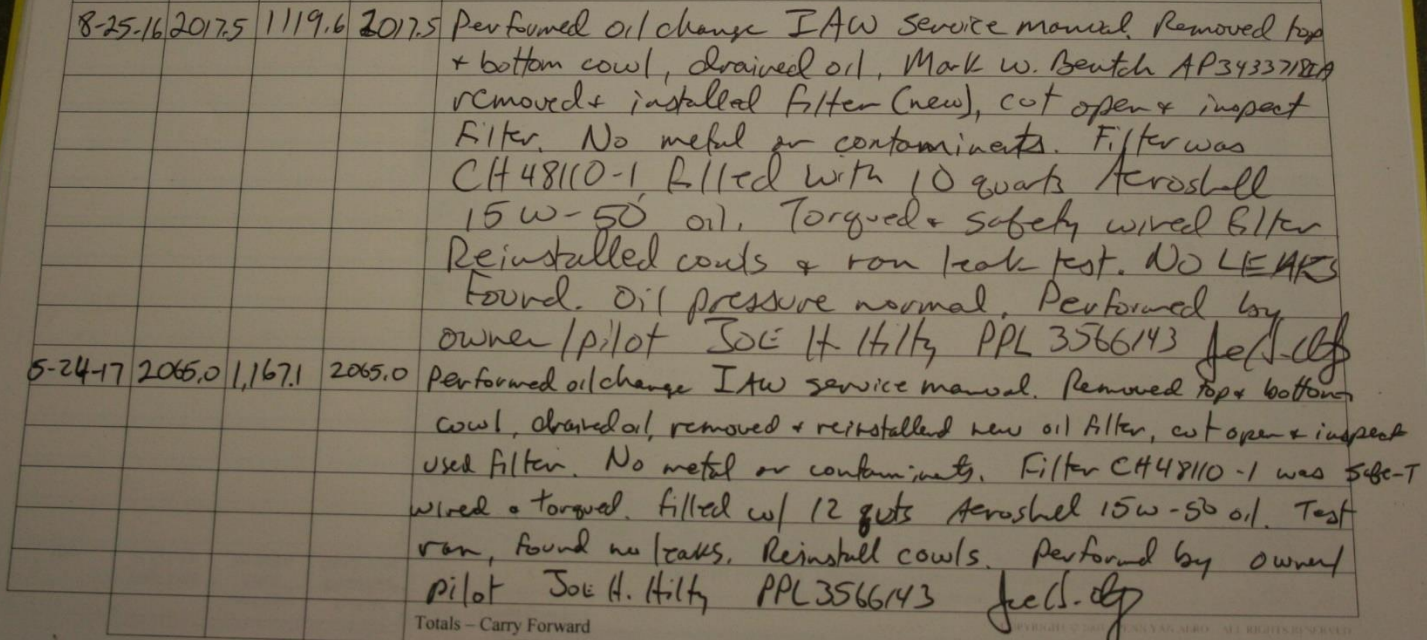 8-25-16 2017.5 1119.6 2017.5 Performed oil change IAW service manual. Removed top
+ bottom cowl, drained oil, Mark W. Bentch AP3433718IA
removed + installed filter (new), cut open + inspect
Filter. No metal or contaminents. Filter was
CH48110-1 filled with 10 quarts Aeroshell
15W-50 oil. Torqued + safety wired filter
Reinstalled cowls + ran leak test. NO LEAKS
Found. Oil pressure normal. Performed by
owner/pilot JOE H. Hilty PPL 3566143
5-24-17 2065.0 1,167.1 2065.0 Performed oil change IAW service manual. Removed top + bottom
cowl, drained oil, removed + reinstalled new oil filter, cut open + inspect
used filter. No metal or contaminents. Filter CH48110-1 was Safe-T
wired + torqued. filled w/ 12 quts Aeroshel 15W-50 oil. Test
ran, found no leaks. Reinstall cowls. Performed by owner/
pilot JOE H. Hilty PPL3566143
Totals – Carry Forward